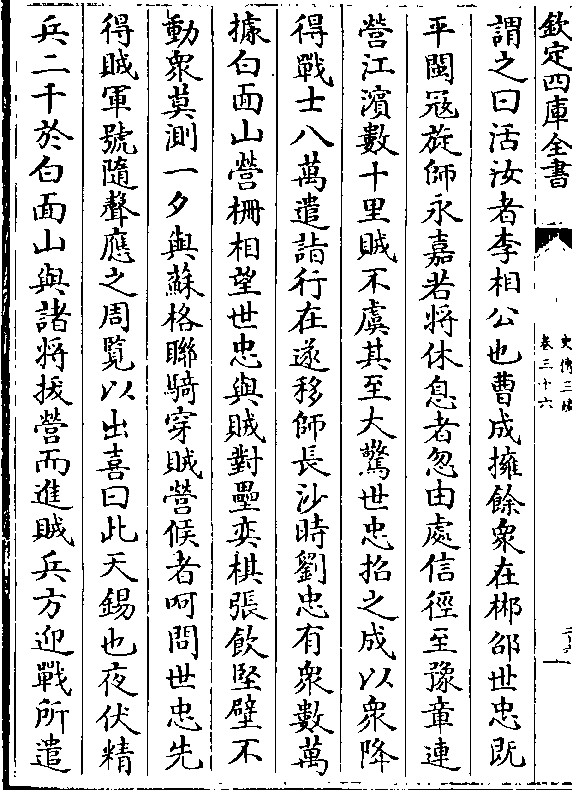 欽定四庫全書
史傳三編
卷三十六
謂之曰活汝者李相公也曹成擁餘衆在郴邵世忠既
平閩冦旋師永嘉若將休息者忽由處信徑至豫章連
營江濱數十里賊不虞其至大驚世忠招之成以衆降
得戰士八萬遣詣行在遂移師長沙時劉忠有衆數萬
據白面山營柵相望世忠與賊對壘奕棋張飲堅壁不
動衆莫測一夕與蘇格聯騎穿賊營候者呵問世忠先
得賊軍號隨聲應之周覽以出喜曰此天錫也夜伏精
兵二千於白面山與諸將拔營而進賊兵方迎戰所遣